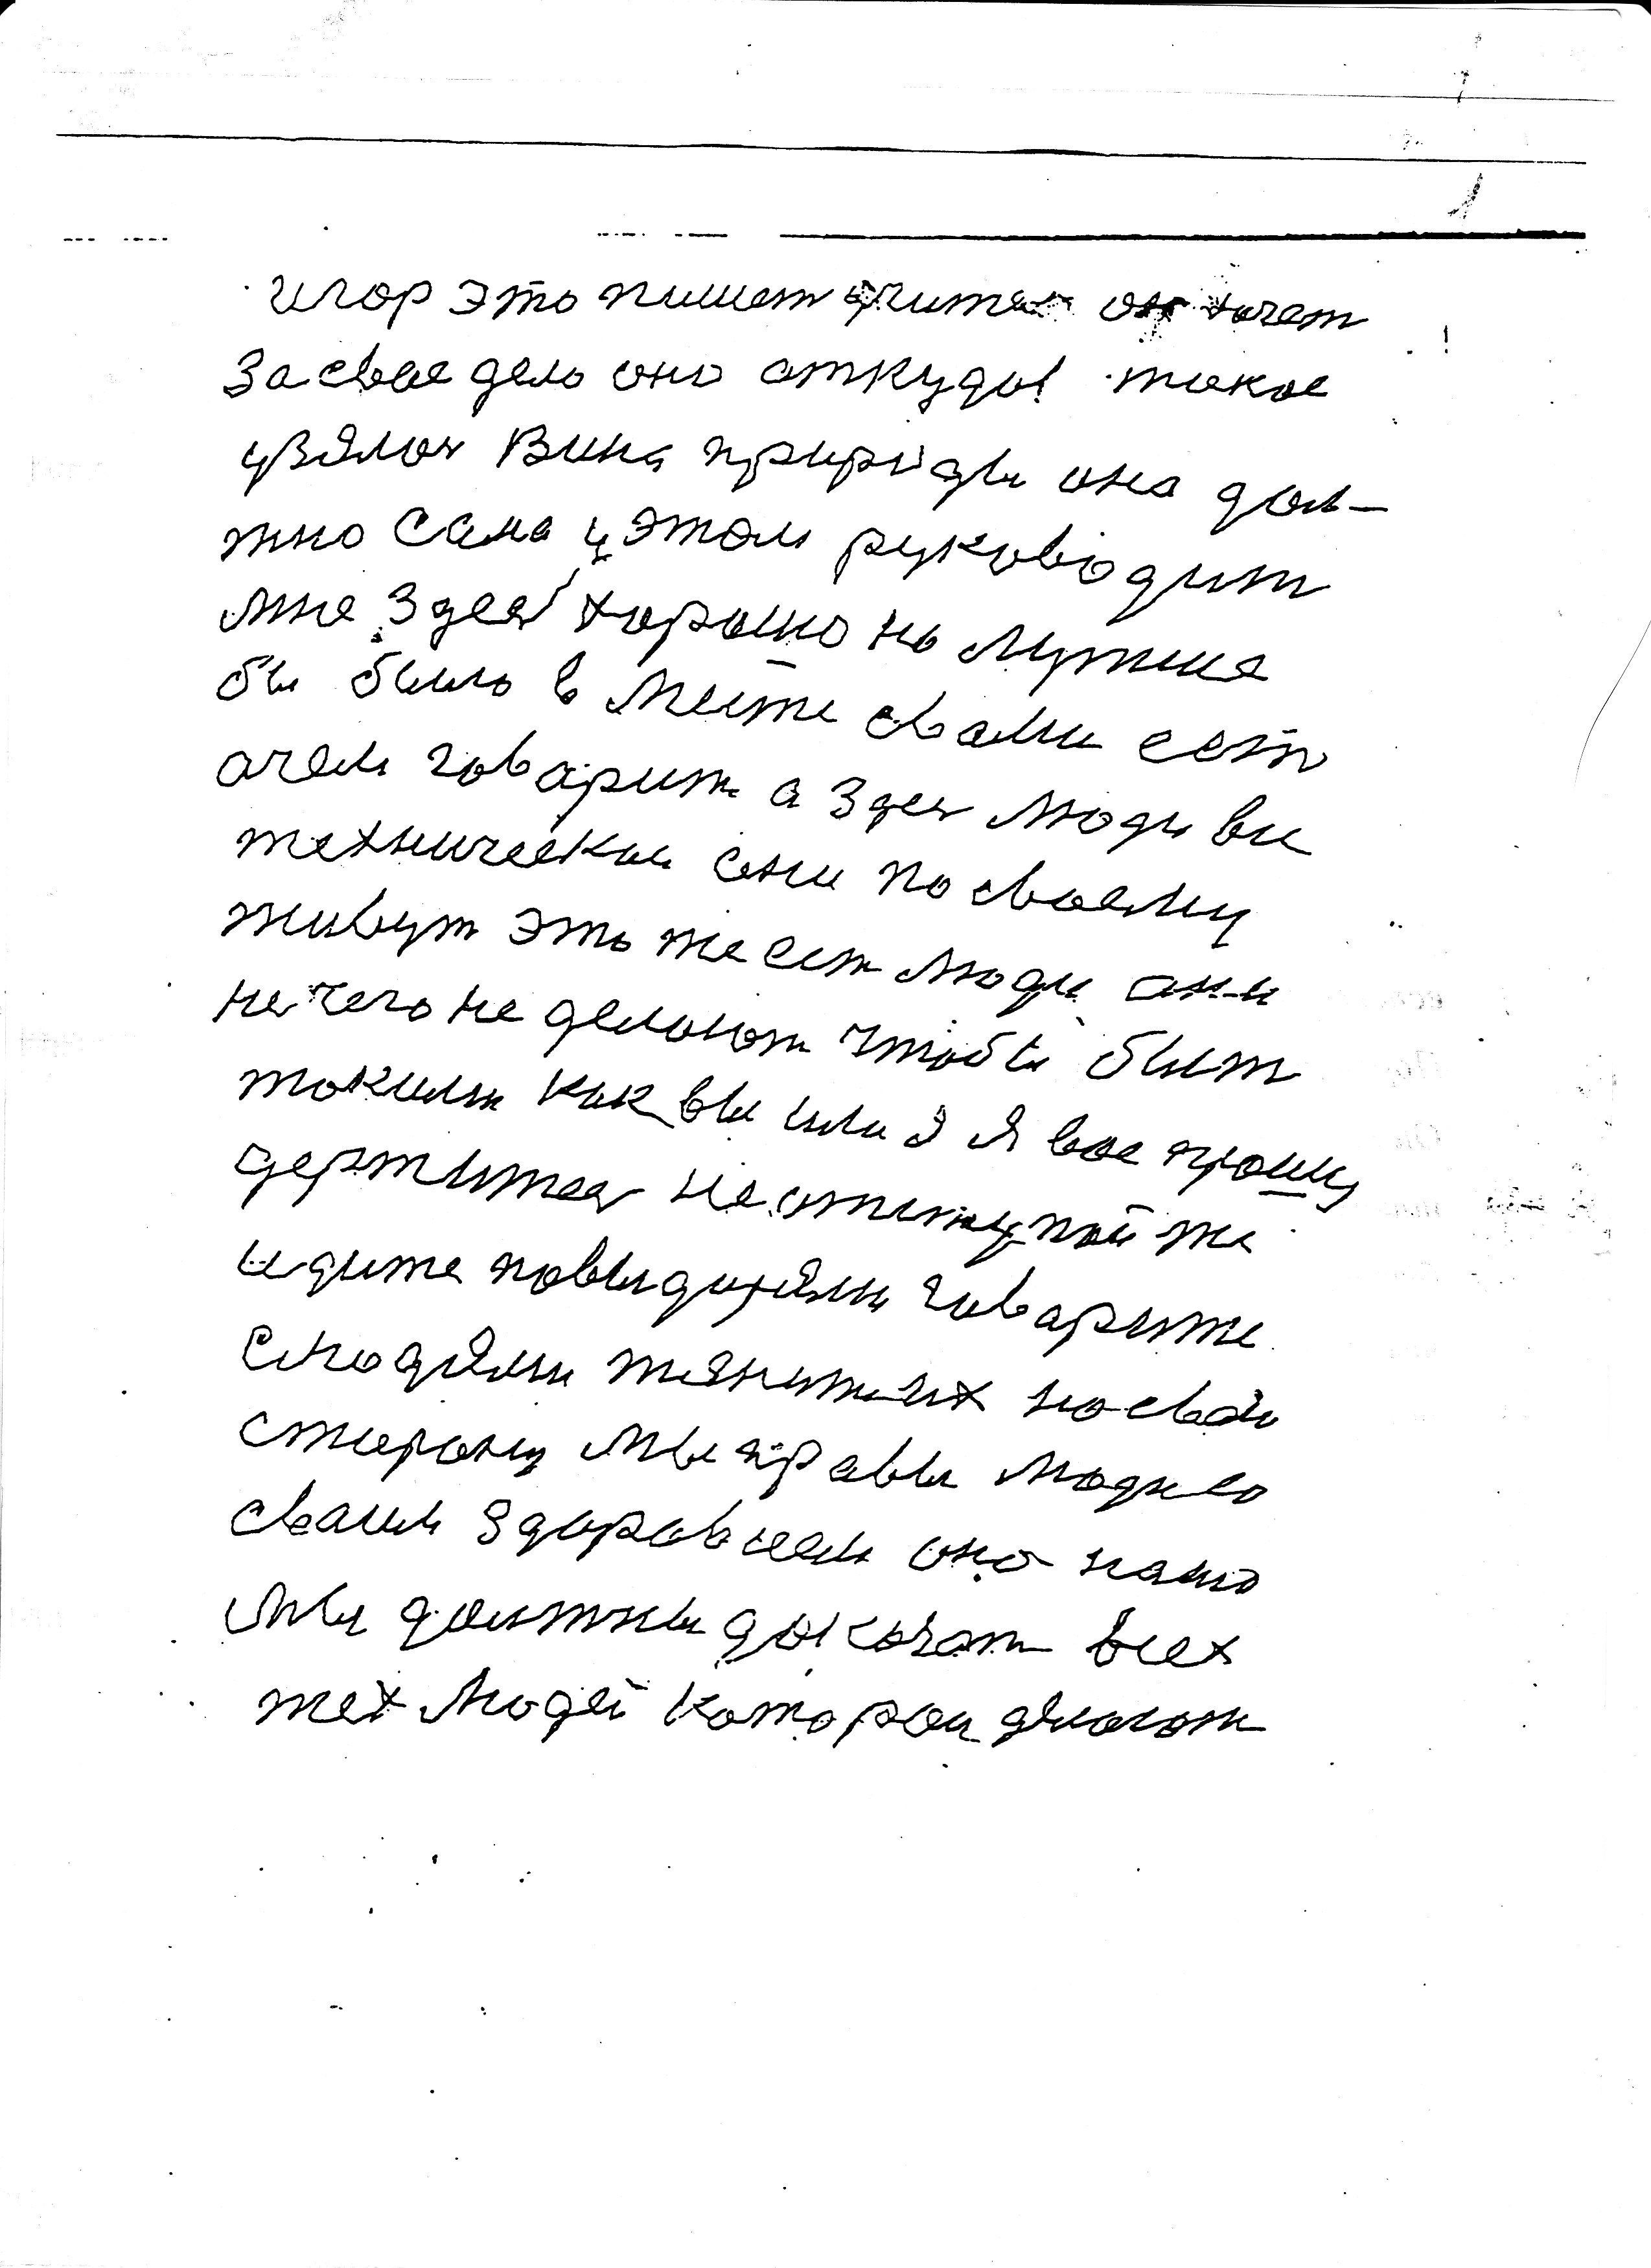 игор это пишет учител он хочет
за свое дело оно откуды такое
узялос Вина природы она дол-
жно сама у этом руководит
мне здес хорошо но лутше
бы было в месте свами есть
очем говарит а здес люди вы
техническии они по своему
живут это же ест люди они
не чего не делоют чтобы быт
такими как вы или я я вас прошу
держитес не отступайте
идите повыдухами говарите
слюдями тянитих на свою
сторону мы правы людие
сваим здоровием оно наше
мы должны доказат всех
тех людей котораи делоют